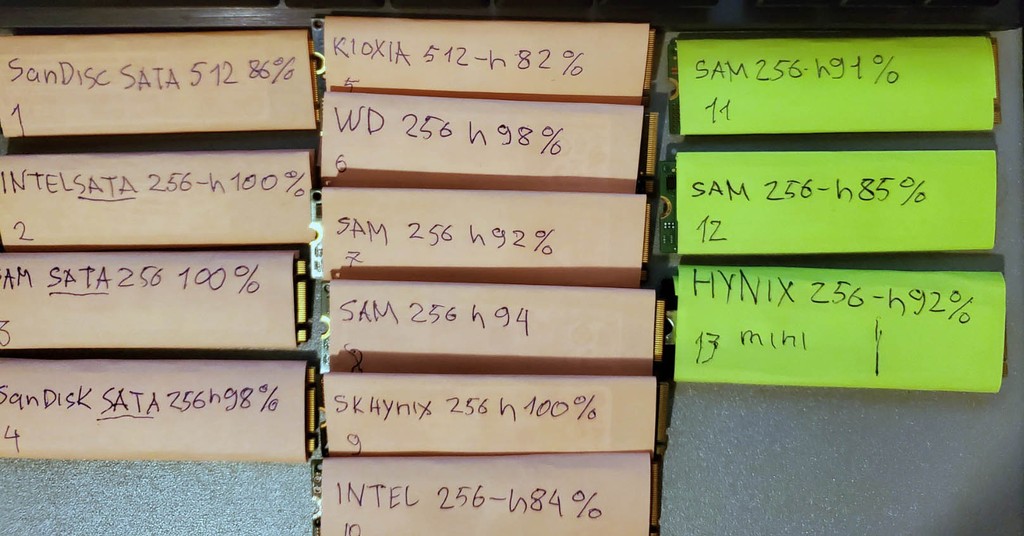 SanDisc SATA 512 86%
1
INTEL SATA 256-h 100%
2
AM SATA 256 100%
3
SanDisk SATA 256 h 98%
4
KIOXIA 512-h 82%
5
WD 256 h 98%
6
SAM 256 h 92%
7
SAM 256 h 94
8
SKHynix 256 h 100%
9
INTEL 256-h 84%
10
SAM 256-h 91%
11
SAM 256-h 85%
12
HYNIX 256-h 92%
13 mini